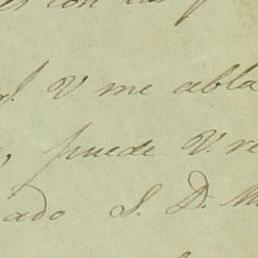 es con
S. V me abla
puede V. re
ado S. D. M